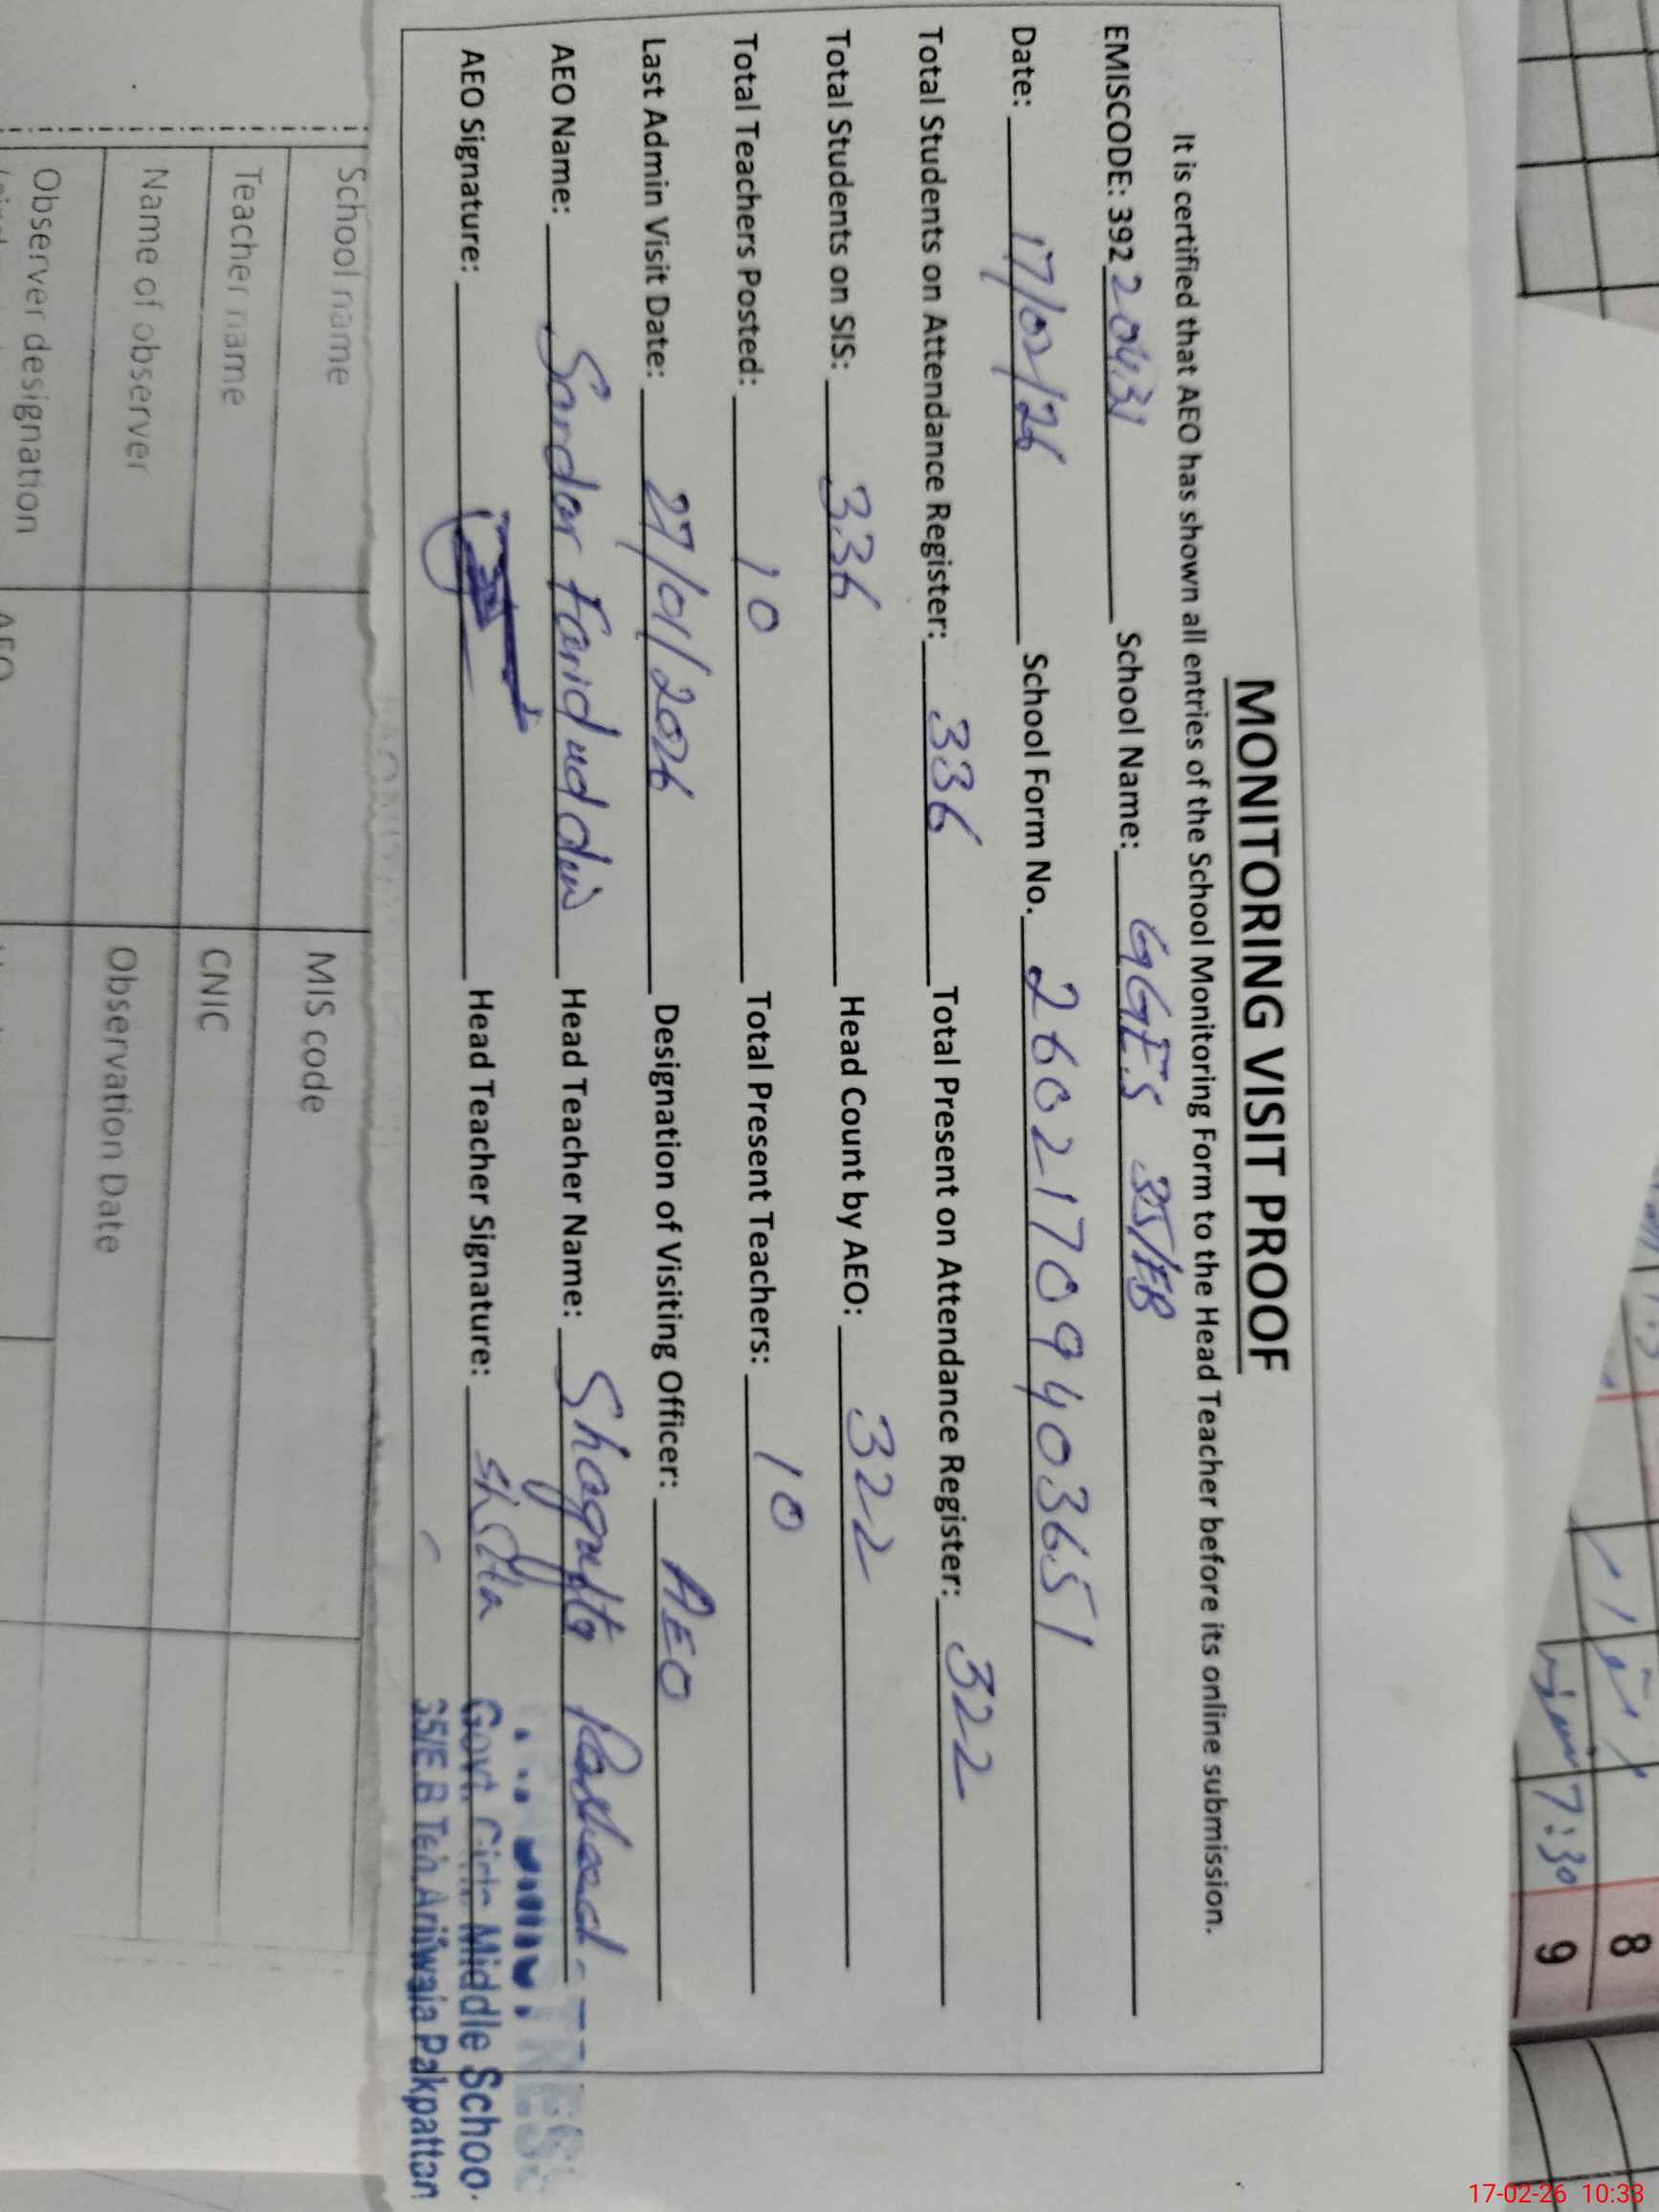 MONITORING VISIT PROOF
It is certified that AEO has shown all entries of the School Monitoring Form to the Head Teacher before its online submission.
EMISCODE: 39220431 School Name: GGES 35/EB
Date: 17/02/26 School Form No. 26021709403651
Total Students on Attendance Register: 336 Total Present on Attendance Register: 322
Total Students on SIS: 336 Head Count by AEO: 322
Total Teachers Posted: 10 Total Present Teachers: 10
Last Admin Visit Date: 27/01/2026 Designation of Visiting Officer: AEO
AEO Name: Sardar Farid ud din Head Teacher Name: Shagufta Rasheed
AEO Signature: Head Teacher Signature:
Govt. Girls Middle Schoo
35/E.B Teh. Arifwala Pakpattan
School name MIS code
Teacher name CNIC
Name of observer Observation Date
Observer designation
8
7:30 9
17-02-26 10:33